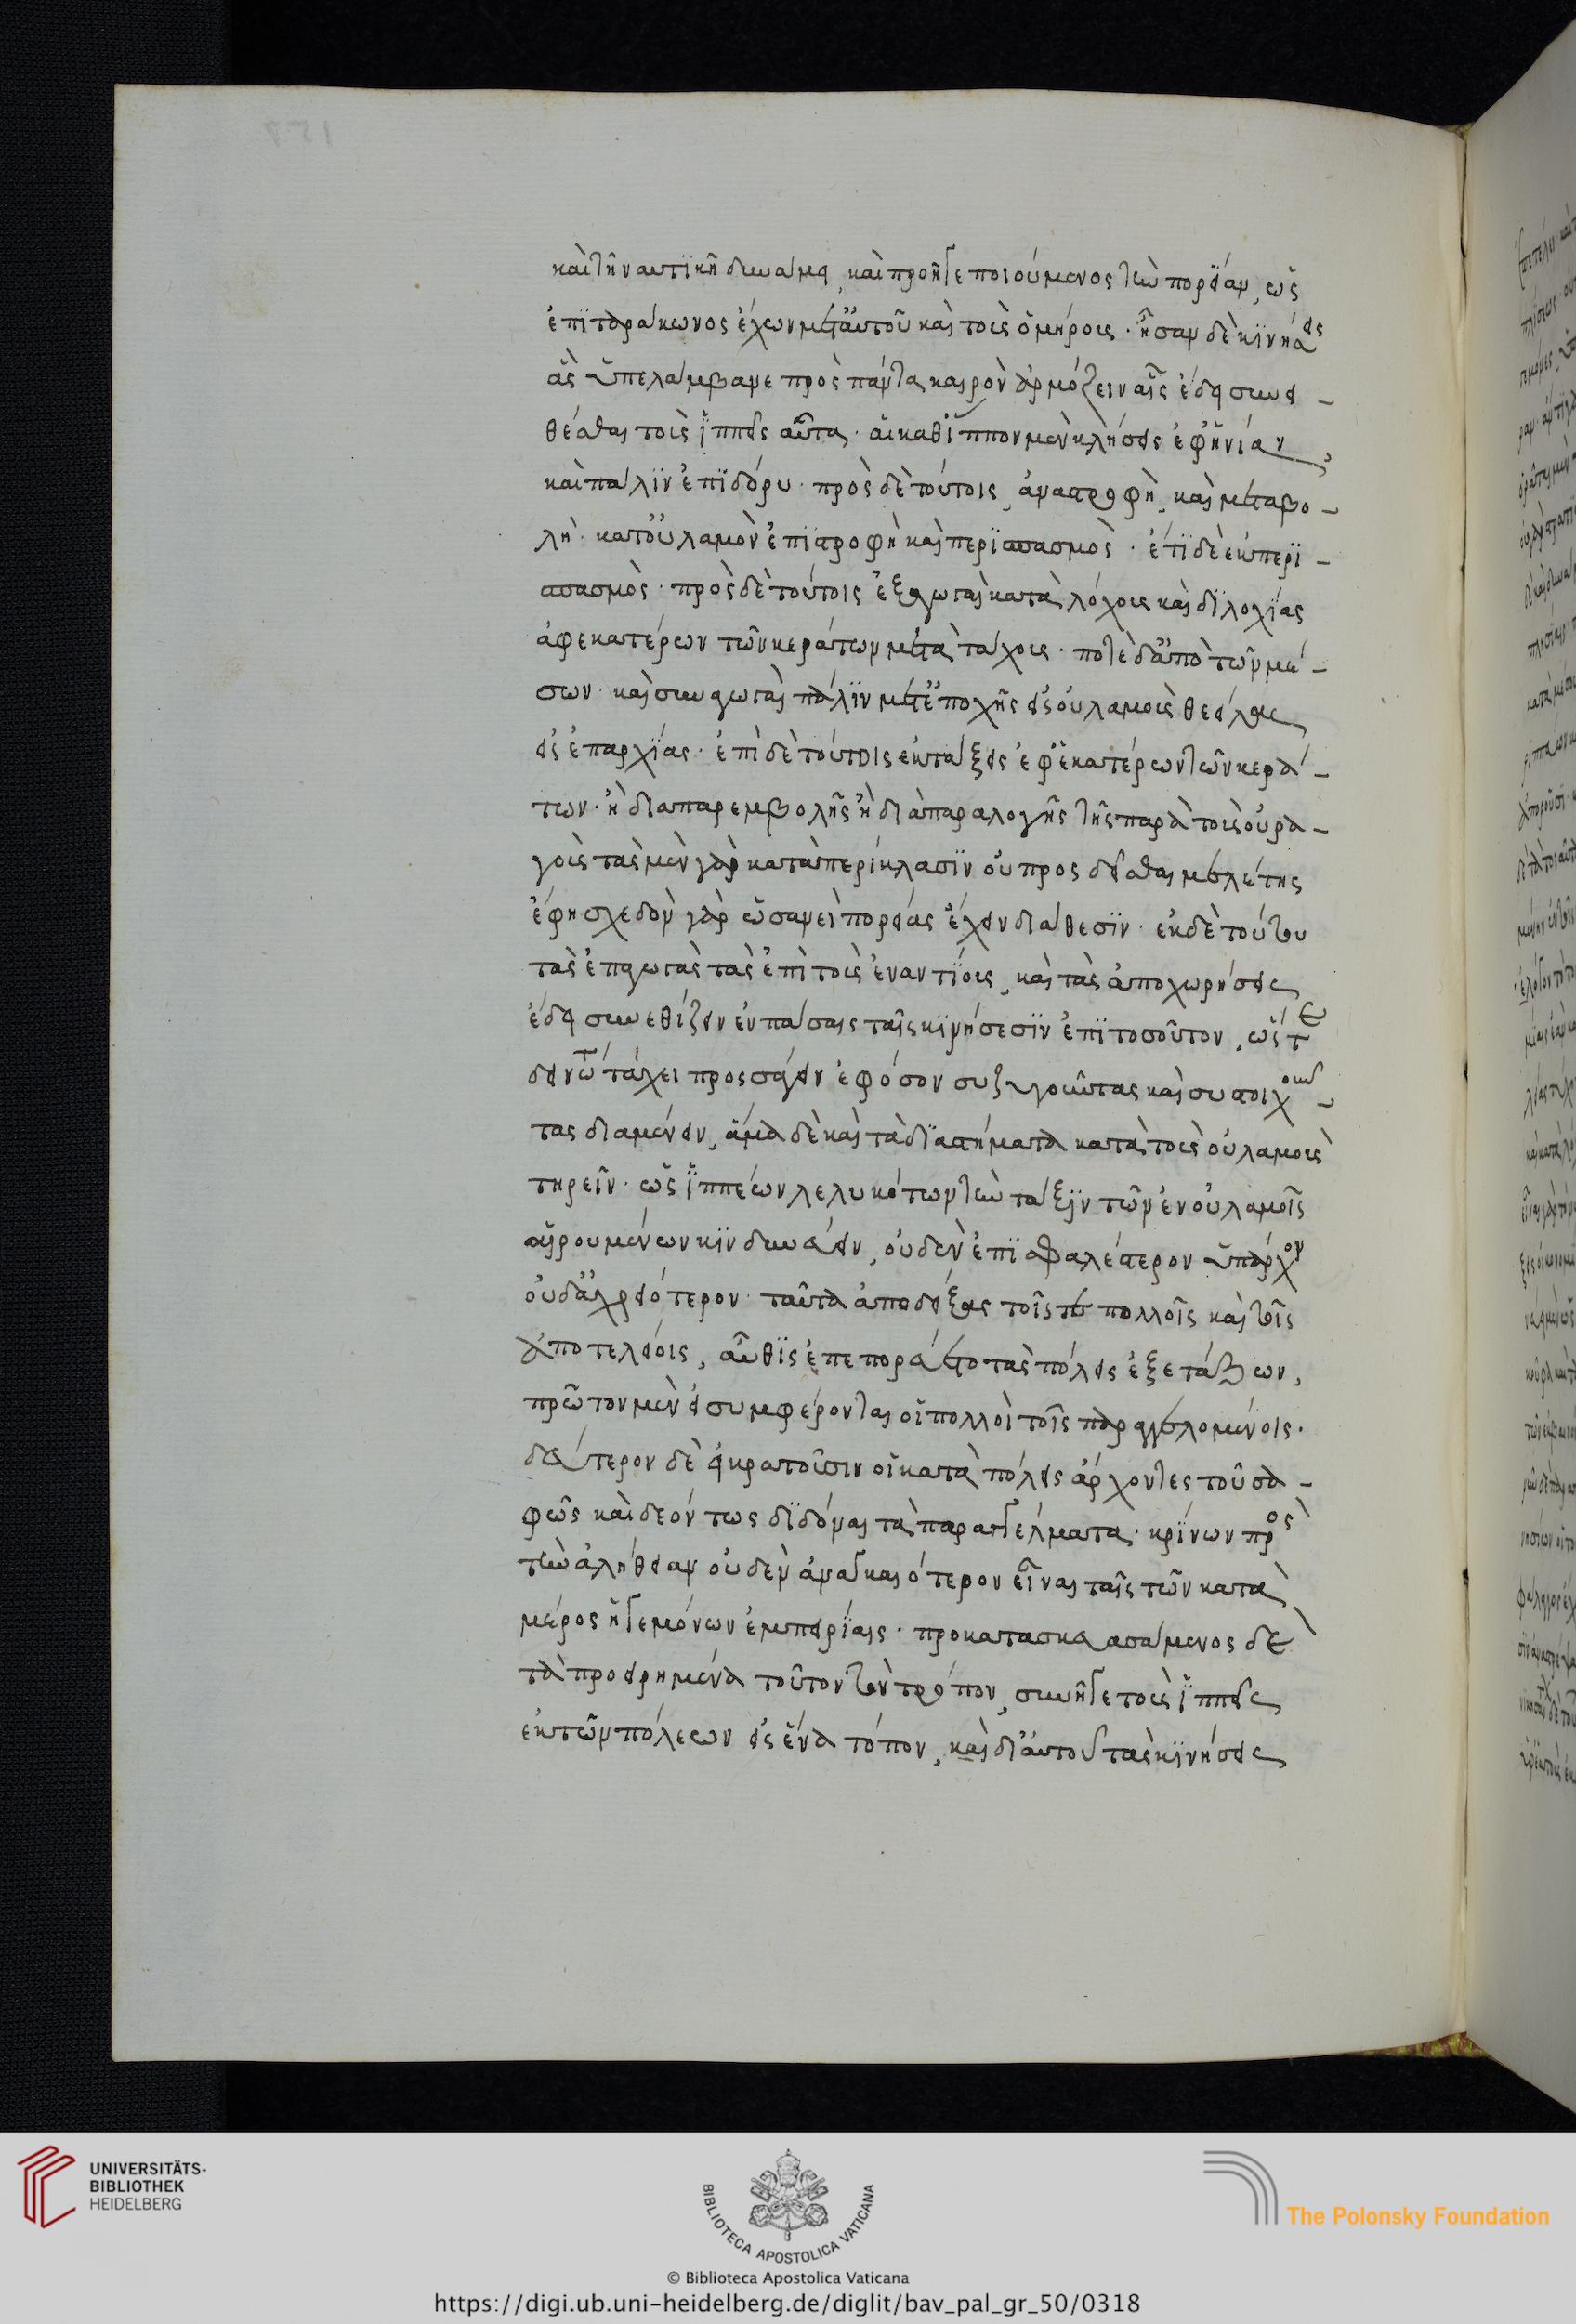 καὶ τὴν ναυτϊκὴ δυναμει, καὶ προῆγε ποιούμενος τὴν πορείαν, ὡς
ἐπϊ ταρακωνος ἔχων μεταὐτοῦ καὶ τοὺς ὁμήρους. ἦσαν δὲ κϊνήσεις
ἃς ὑπελάμβανε πρὸς πάντα καιρὸν ἁρμόζειν αἷς ἔδει συνει-
θέσθαι τοὺς ἵππεις αὗται. αἱ καθἵππον μὲν κλήσεις ἐφἡνίαν
καὶ παλϊν ἐπϊ δόρυ. πρὸς δὲ τούτοις, ἀναστροφὴ, καὶ μεταβο-
λὴ. κατοὐλαμὸν ἐπϊστροφὴ καὶ περϊσπασμὸς. ἔτϊ δὲ ἐκπερϊ-
σπασμὸς. πρὸς δὲ τούτοις ἐξαγωγαὶ κατὰ λόχους καὶ δϊλοχϊας
ἀφεκατέρων τῶν κεράτων μετὰ ταχους. ποτὲ δἀπὸ τῶν μέ-
σων. καὶ συναγωγαὶ πάλϊν μετἐποχῆς εἰς οὐλαμοὺς θεείλας
εἰς ἐπαρχϊας. ἐπὶ δὲ τούτοις ἐκταξεις ἐφἑκατέρων τῶν κερά-
των. ἢ διαπαρεμβολῆς ἢ διὰπαραλογῆς τῆς παρὰ τοὺς οὐρα-
γοὺς τὰς μὲν γὰρ κατὰπερίκλασϊν οὐ προς δεῖσθαι μελέτης
ἔφη σχεδὸν γὰρ ὡσανεὶ πορείας ἔχειν διάθεσϊν. ἐκ δὲ τούτου
τὰς ἐπαγωγὰς τὰς ἐπὶ τοὺς ἐναντϊους, καὶ τὰς ἀποχωρήσεις
ἔδει συνεθίζειν ἐν πάσαις ταῖς κϊνήσεσϊν ἐπϊ τοσοῦτον, ὥστε
δεινῶ τάχει προσάγειν ἐφόσον συζυγοῦντας καὶ συστοιχοῦν-
τας διαμένειν, ἅμα δὲ καὶ τὰ δϊαστήματα κατὰ τοὺς οὐλαμοὺς
τηρεῖν. ὡς ἵππέων λελυκότων τὴν τάξϊν τῶν ἐν οὐλαμοῖς
αἱρουμένων κϊνδυνεύειν, οὐδὲν ἐπϊσφαλέστερον ὑπάρχον
οὐδἀχρειότερον. ταῦτα ἀποδείξας τοῖς τε πολλοῖς καὶ τοῖς
ἀποτελείοις, αὖθϊς ἐπεπορεύετο τὰς πόλεις ἐξετάζων,
πρῶτον μὲν εἰ συμφέρονται οἱ πολλοὶ τοῖς παραγγελομένοις.
δεύτερον δὲ εἰ κρατοῦσιν οἱ κατὰ πόλεις ἄρχοντες τοῦ σα-
φῶς καὶ δεόντως δϊδόναι τὰ παραγγέλματα. κρϊνων πρὸς
τὴν ἀλήθειαν οὐδὲν ἀναγκαιότερον εἶναι ταῖς τῶν κατὰ
μέρος ἡγεμόνων ἐμπειρϊαις. προκατασκευασάμενος δὲ
τὰ προειρημένα τοῦτον τὸν τρόπον, συνῆγε τοὺς ἵππεις
ἐκ τῶν πόλεων εἰς ἕνα τόπον, καὶ διἁυτοῦ τὰς κϊνήσεις
UNIVERSITÄTS-
BIBLIOTHEK
HEIDELBERG
BIBLIOTECA APOSTOLICA VATICANA
© Biblioteca Apostolica Vaticana
The Polonsky Foundation
https://digi.ub.uni-heidelberg.de/diglit/bav_pal_gr_50/0318